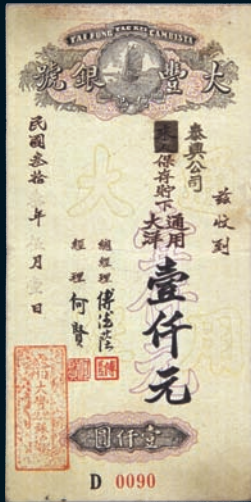 TAI FUNG CAMBISTA
大豐銀號
茲收到
泰興公司
保存貯下
通用
大洋
壹仟元
總經理 傅德蔭
經理 何賢
民國叁拾 年 月壹日
壹仟圓
D 0090